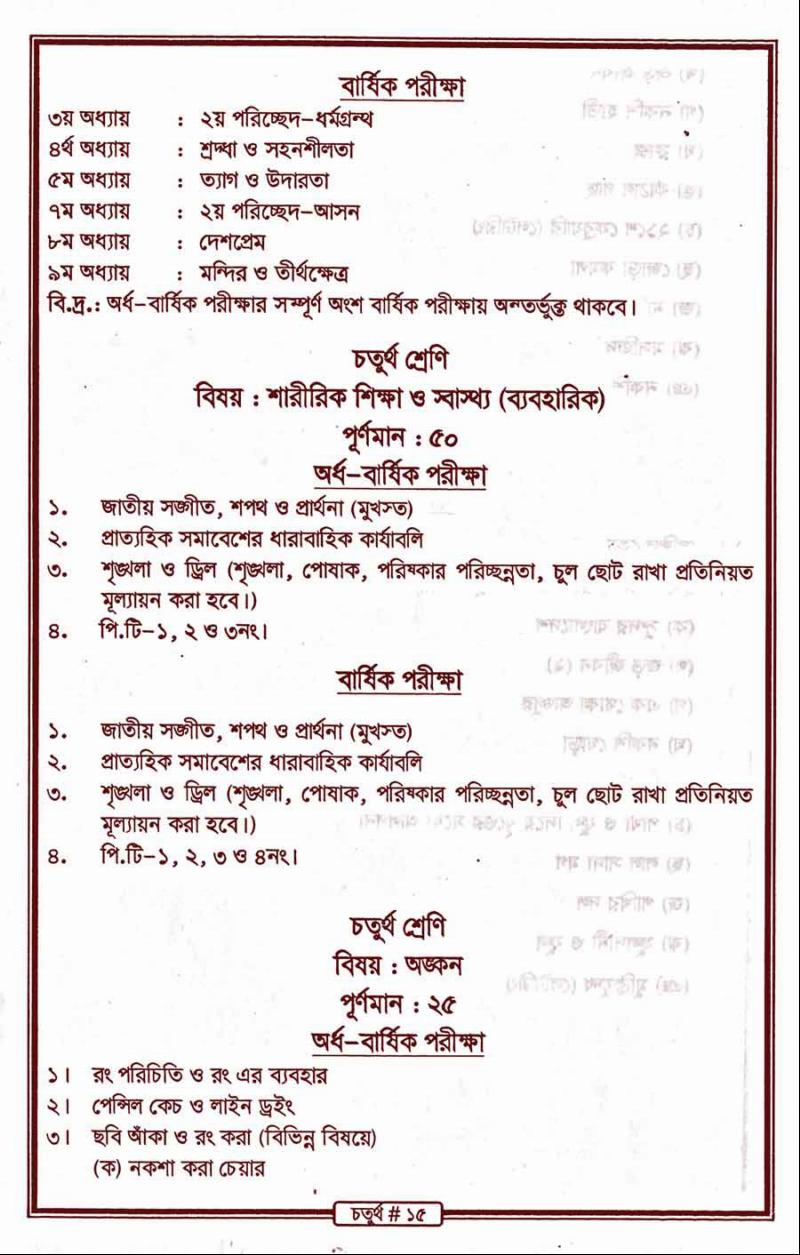 বার্ষিক পরীক্ষা
৩য় অধ্যায় : ২য় পরিচ্ছেদ-ধর্মগ্রন্থ
৪র্থ অধ্যায় : শ্রদ্ধা ও সহনশীলতা
৫ম অধ্যায় : ত্যাগ ও উদারতা
৭ম অধ্যায় : ২য় পরিচ্ছেদ-আসন
৮ম অধ্যায় : দেশপ্রেম
৯ম অধ্যায় : মন্দির ও তীর্থক্ষেত্র
বি.দ্র.: অর্ধ-বার্ষিক পরীক্ষার সম্পূর্ণ অংশ বার্ষিক পরীক্ষায় অন্তর্ভুক্ত থাকবে।
চতুর্থ শ্রেণি
বিষয় : শারীরিক শিক্ষা ও স্বাস্থ্য (ব্যবহারিক)
পূর্ণমান : ৫০
অর্ধ-বার্ষিক পরীক্ষা
১. জাতীয় সঙ্গীত, শপথ ও প্রার্থনা (মুখস্ত)
২. প্রাত্যহিক সমাবেশের ধারাবাহিক কার্যাবলি
৩. শৃঙ্খলা ও ড্রিল (শৃঙ্খলা, পোষাক, পরিষ্কার পরিচ্ছন্নতা, চুল ছোট রাখা প্রতিনিয়ত
মূল্যায়ন করা হবে।)
৪. পি.টি-১, ২ ও ৩নং।
বার্ষিক পরীক্ষা
১. জাতীয় সঙ্গীত, শপথ ও প্রার্থনা (মুখস্ত)
২. প্রাত্যহিক সমাবেশের ধারাবাহিক কার্যাবলি
৩. শৃঙ্খলা ও ড্রিল (শৃঙ্খলা, পোষাক, পরিষ্কার পরিচ্ছন্নতা, চুল ছোট রাখা প্রতিনিয়ত
মূল্যায়ন করা হবে।)
৪. পি.টি-১, ২, ৩ ও ৪নং।
চতুর্থ শ্রেণি
বিষয় : অঙ্কন
পূর্ণমান : ২৫
অর্ধ-বার্ষিক পরীক্ষা
১। রং পরিচিতি ও রং এর ব্যবহার
২। পেন্সিল কেচ ও লাইন ড্রইং
৩। ছবি আঁকা ও রং করা (বিভিন্ন বিষয়ে)
(ক) নকশা করা চেয়ার
চতুর্থ # ১৫